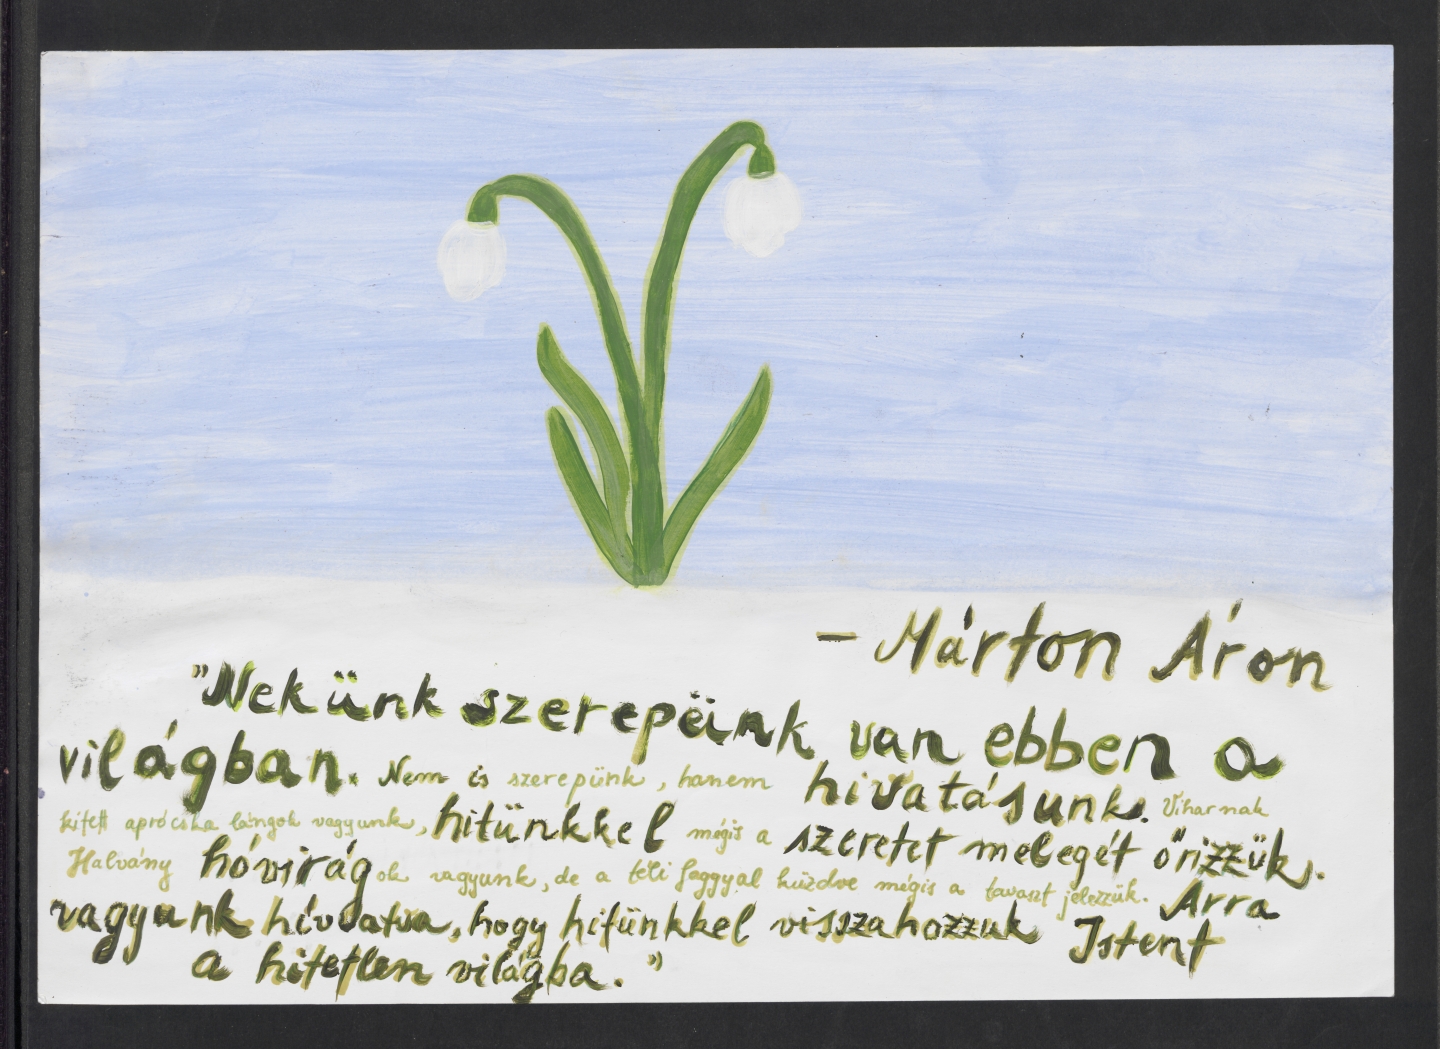 – Márton Áron
"Nekünk szerepünk van ebben a
világban. Nem is szerepünk, hanem hivatásunk. Viharnak
kitett aprócska lángok vagyunk, hitünkkel mégis a szeretet melegét őrizzük.
Halvány hóvirágok vagyunk, de a téli faggyal küzdve mégis a tavaszt jelezzük. Arra
vagyunk hívatva, hogy hitünkkel visszahozzuk Istent
a hitetlen világba."